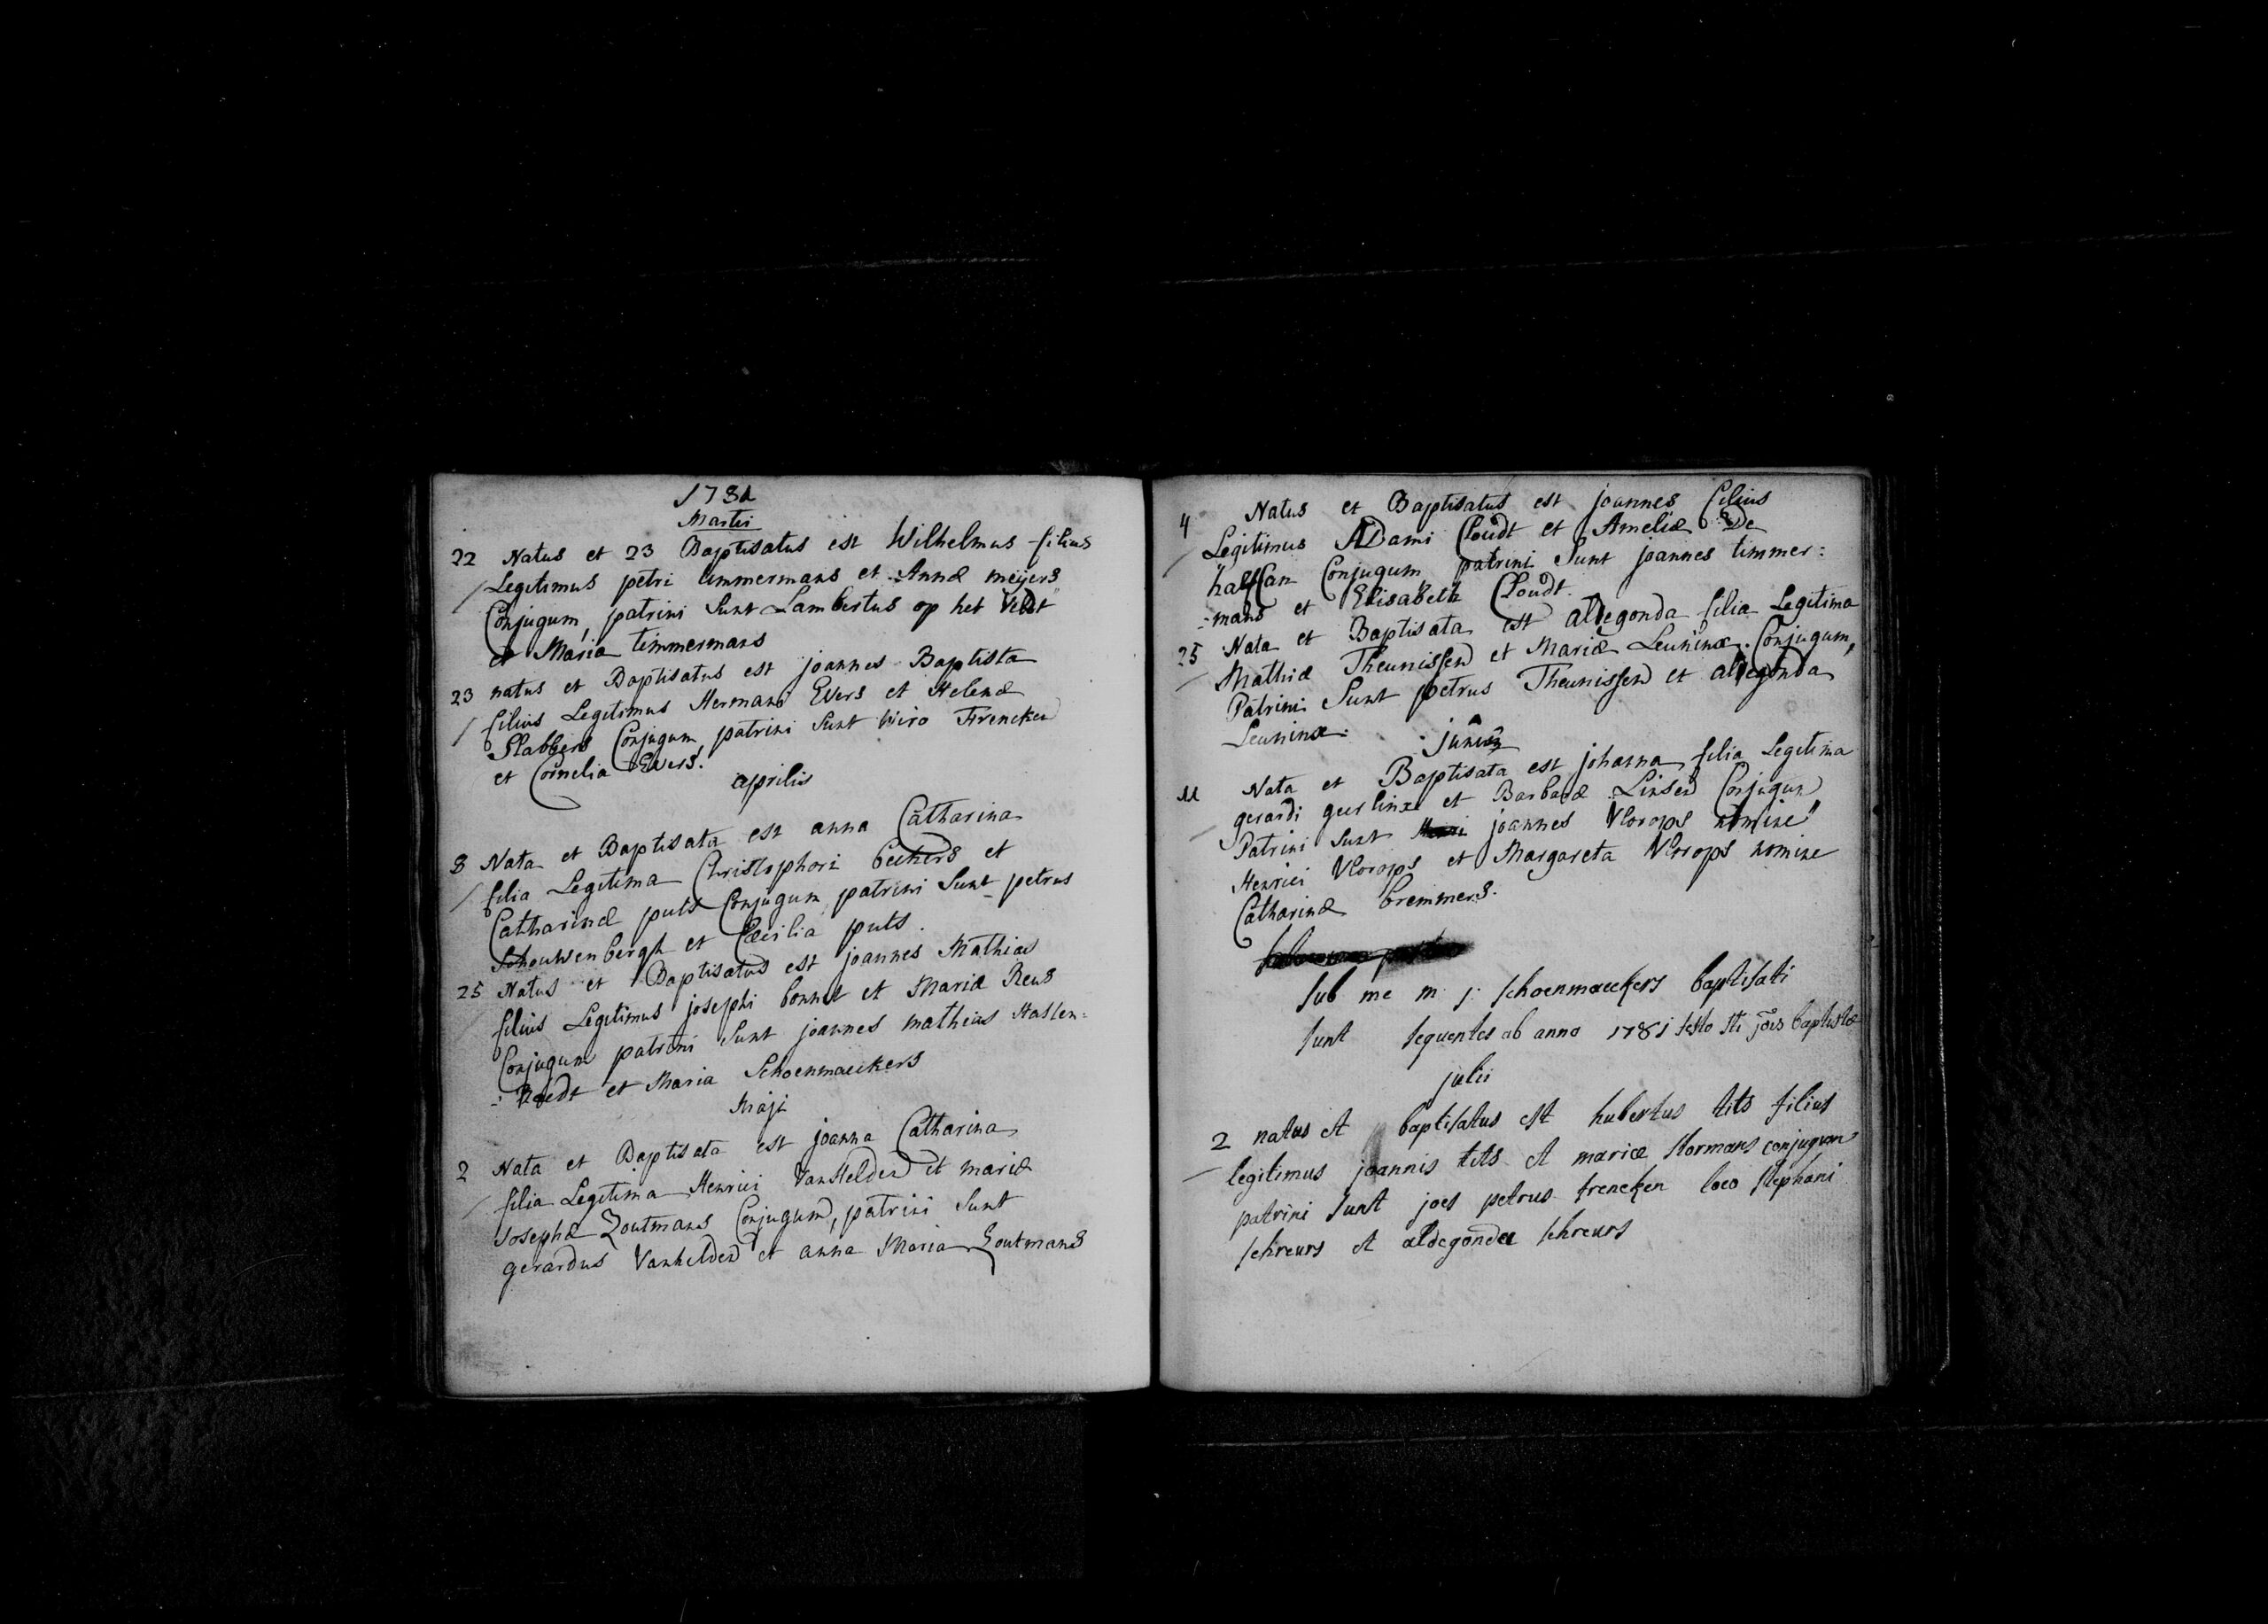 1781
Martii
22 Natus et 23 Baptisatus est Wilhelmus filius
Legitimus petri timmermans et Annæ meijers
Conjugum, patrini Sunt Lambertus op het Veldt
et Maria timmermans
23 natus et Baptisatus est joannes Baptista
filius Legitimus Hermani Evers et Helenæ
Slabbers Conjugum, patrini Sunt Wiro Frencken
et Cornelia Evers.
aprilis
8 Nata et Baptisata est anna Catharina
filia Legitima Christophori beckers et
Catharinæ puts Conjugum patrini Sunt petrus
Schouwenbergh et Cæcilia puts.
25 Natus et Baptisatus est joannes Mathias
filius Legitimus josephi bonnet et Mariæ Reus
Conjugum patrini Sunt joannes mathias Hasten=
et Maria Schoenmaeckers
Maji
2 Nata et Baptisata est joanna Catharina
filia Legitima Henrici VanHelden et mariæ
Josephæ Zoutmans Conjugum, patrini Sunt
gerardus Vanhelden et anna Maria Zoutmans
4 Natus et Baptisatus est joannes filius
Legitimus ADami Cloudt et Ameliæ De
halffan Conjugum patrini Sunt joannes timmer:
=mans et Elisabeth Cloudt.
25 Nata et Baptisata est aldegonda filia Legitima
Mathiæ Theunissen et Mariæ Leuninx. Conjugum,
Patrini Sunt petrus Theunissen et aldegonda
Leuninx.
junii
11 Nata et Baptisata est johanna filia Legitima
gerardi geurlinx et Barbaræ Linsen Conjugum
Patrini Sunt joannes Vlorops nomine
Henrici Vlorops et Margareta Vlorops nomine
Catharinæ bremmers.
sub me m j: schoenmaeckers baptisati
sunt sequentes ab anno 1781 festo sti joes baptistæ
julii
2 natus et baptisatus est hubertus tits filius
legitimus joannis tits et mariæ stormans conjugum
patrini sunt joes petrus frencken loco stephani
schreurs et aldegonda schreurs